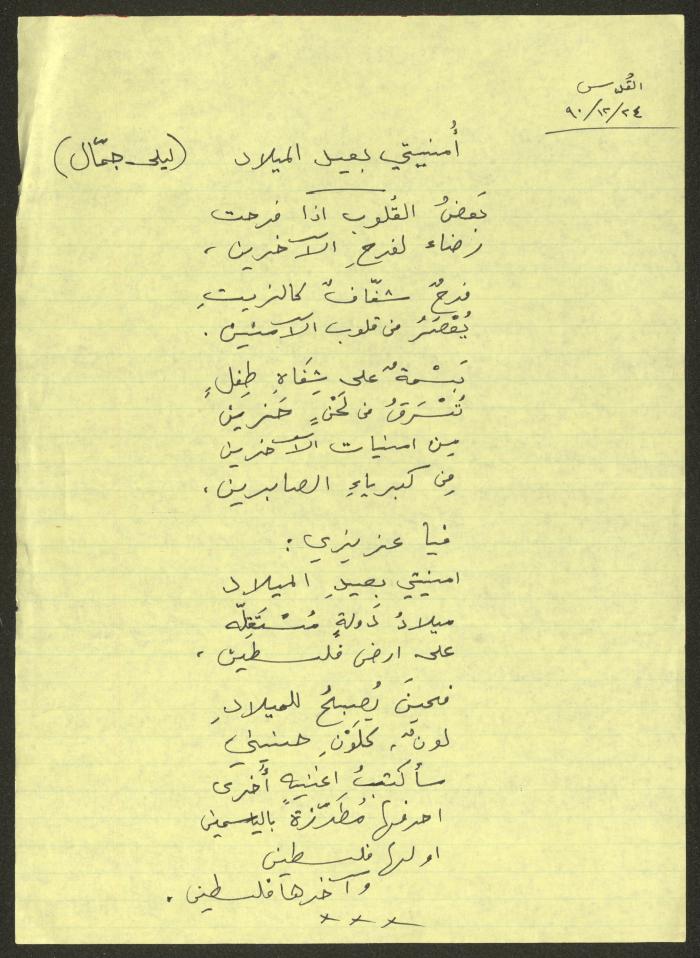 القُدس
٩٠/١٢/٢٤
أُمنيتي بعيد الميلاد (ليلى جمّال)
بَعضُ القُلوب اذا فرحت
رضاء لفرحِ الآخرين،
فرحٌ شفّافٌ كالزيتِ
يُعْصَرُ من قلوب الآمنين.
بَسْمةٌ على شِفَاهِ طِفلٍ
تُسْرَقُ من لَحْنٍ حَزين
مِن امنيات الآخرين
مِن كبرياءِ الصابرين.
فيا عزيزي:
امنيتي بعيدِ الميلاد
ميلادُ دَولةٍ مُسْتَقِلّه
على ارض فلسطين.
فحينَ يُصبحُ للميلادِ
لونٌ، كلَوْنِ حنيني
سأكتبُ اغنيهٍ أُخرى
احرفها مُطَرّزة بالياسمين
اولها فلسطين
وآخرها فلسطين.